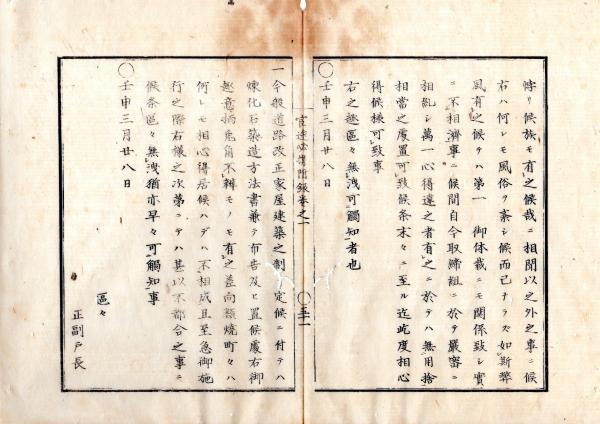 誇リ候族モ有之候哉ニ相聞以之外之事ニ候
右ハ何レモ風俗ヲ紊シ候而已ナラズ如斯弊
風有之候テハ第一 御体裁ニモ関係致シ実
ニ不相濟事ニ候間自今取締組ニ於テ嚴密ニ
相乱シ萬一心得違之者有之ニ於テハ無用捨
相當之處置可致候条末々ニ至ル迄屹度相心
得候様可致事
右之趣區々無洩可觸知者也
〇壬申三月廿八日
官達必携附錄巻之一
〇五十一
一今般道路改正家屋建築之制定候ニ付テハ
煉化石築造方法書兼テ布告及ヒ置候處右御
趣意柄兎角不辨モノモ有之差向類焼町々ハ
何レモ相心得居候ハデハ不相成且至急御施
行之際右様之次第ニテハ甚以不都合之事ニ
候条區々無洩猶亦早々可觸知事
〇壬申三月廿八日
區々
正副戸長